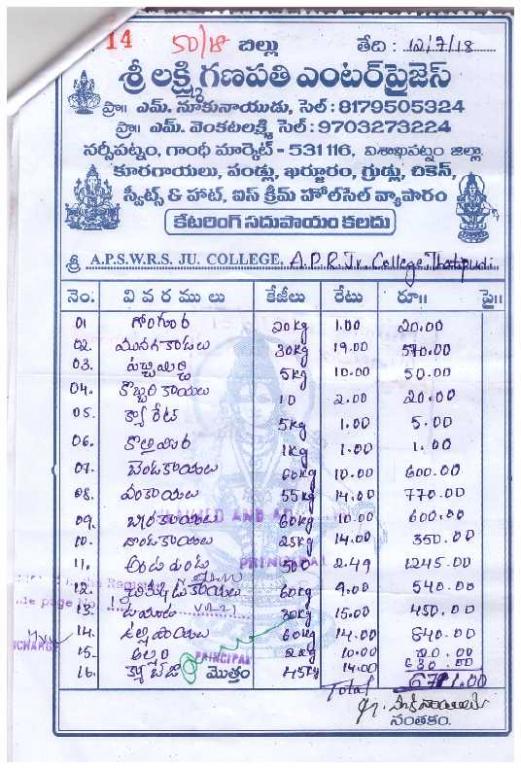 14 50/18 బిల్లు తేది : 12/7/18
శ్రీ లక్ష్మి గణపతి ఎంటర్‌ప్రైజెస్
ప్రొ॥ ఎమ్. నూకునాయుడు, సెల్ : 8179505324
ప్రొ॥ ఎమ్. వెంకటలక్ష్మి సెల్ : 9703273224
నర్సీపట్నం, గాంధీ మార్కెట్ - 531116, విశాఖపట్నం జిల్లా.
కూరగాయలు, పండ్లు, ఖర్జూరం, గ్రుడ్లు, చికెన్,
స్వీట్స్ & హాట్, ఐస్ క్రీమ్ హోల్‌సేల్ వ్యాపారం
కేటరింగ్ సదుపాయం కలదు
శ్రీ A.P.S.W.R.S. JU. COLLEGE, A.P.R.Jr. College, Thatipudi
నెం. వివరములు కేజీలు రేటు రూ॥ పై॥
01 గోంగూర 20kg 1.00 20.00
02. మునగకాడలు 30kg 19.00 570.00
03. పచ్చిమిర్చి 5kg 10.00 50.00
04. కొబ్బరి కాయలు 10 2.00 20.00
05. క్యారేట్ 5kg 1.00 5.00
06. కొత్తిమిర 1kg 1.00 1.00
07. బెండకాయలు 60kg 10.00 600.00
08. వంకాయలు 55kg 14.00 770.00
09. బీరకాయలు 60kg 10.00 600.00
10. దొండకాయలు 25kg 14.00 350.00
11. 500 2.49 1245.00
PRINCIPAL
12. 60kg 9.00 540.00
13. 30kg 15.00 450.00
14. ఉల్లిపాయలు 60kg 14.00 840.00
15. అల్లం 2kg 10.00 20.00
PRINCIPAL
16. క్యాబేజీ మొత్తం 45kg 14.00 630.00
Total 6711.00
సంతకం.